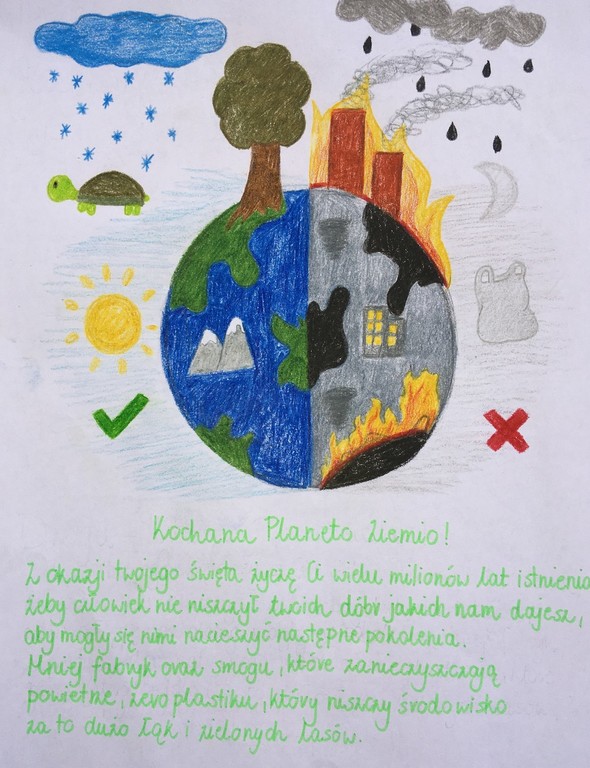 Kochana Planeto Ziemio!
Z okazji twojego święta życzę Ci wielu milionów lat istnienia
żeby człowiek nie niszczył twoich dóbr jakich nam dajesz,
aby mogły się nimi nacieszyć następne pokolenia.
Mniej fabryk oraz smogu, które zanieczyszczają
powietrze, zero plastiku, który niszczy środowisko
za to dużo łąk i zielonych lasów.